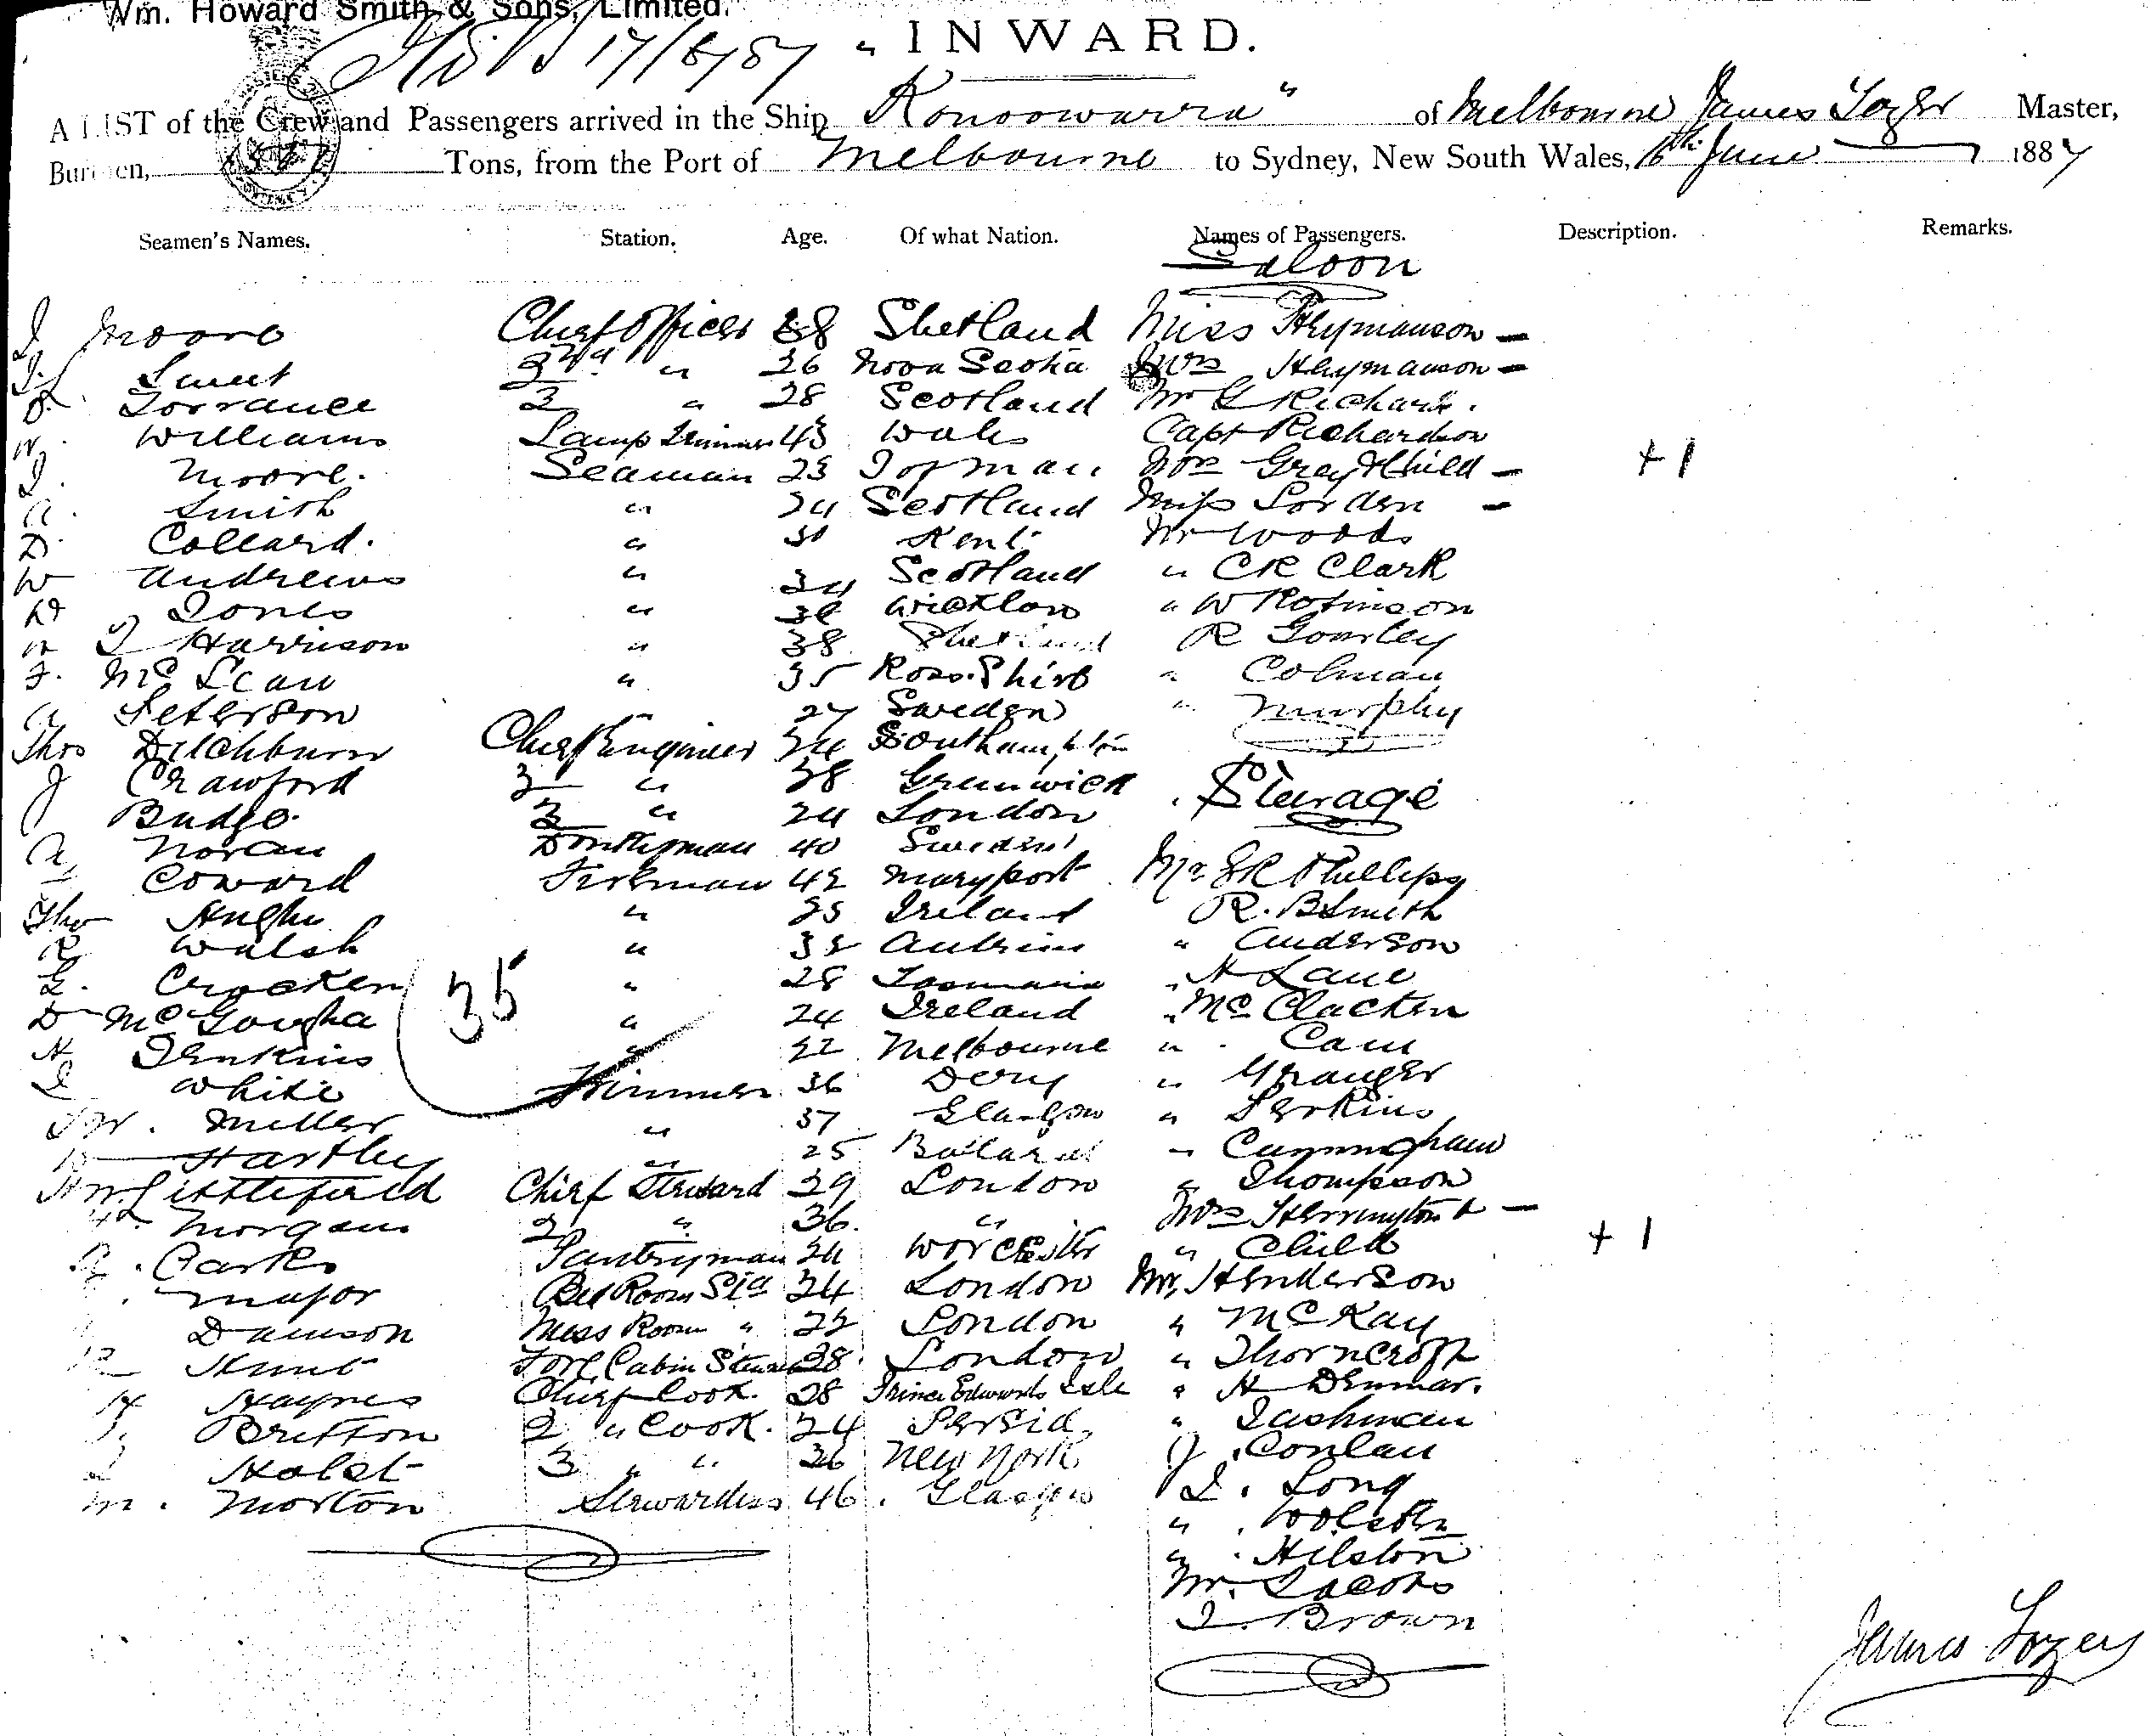 Wm. Howard Smith & Sons, Limited.
17/6/87 " INWARD.
A LIST of the Crew and Passengers arrived in the Ship "Konoowarra" of Melbourne James Tozer Master,
Burthen, Tons, from the Port of Melbourne to Sydney, New South Wales, 16th June 1887
Seamen's Names. Station. Age. Of what Nation. Names of Passengers. Description. Remarks.
Saloon
J Moore Chief Officer 38 Shetland Miss Heymanson -
Sweet 2nd " 26 Nova Scotia Mrs Heymanson -
Torrance 3 " 28 Scotland Mr G Richards.
W. Williams Lamp Trimmer 43 Wales Capt Richardson
J. Moore. Seaman 23 I of Man. Mrs Gray & Child - +1
A. Smith " 24 Scotland Miss Lorden -
D. Collard. " 31 Kent. Mr Woods
W Andrews " 34 Scotland " CR Clark
Jones " Wicklow " W Robinson
J Harrison " 38 Shetland R Gourley
F. McLean " 35 Ross.Shire " Colman
A Peterson " 27 Sweden " Murphy
Thos Ditchburn Chief Engineer 34 Southampton
J Crawford 2 " 38 Greenwich Steerage
J Budge. 3 " 24 London
A Noran Donkeyman 40 Sweden
Coward Fireman 42 Maryport Mr Phillips
Tho Hughes " 25 Ireland R. B Smith
R Walsh " 35 Antrim " Anderson
G. Cracken " 28 Tasmania " H Lane
D McGougha " 24 Ireland " McClacken
35
H Jenkins " 22 Melbourne " Cam
J White Trimmer 36 Derry " Granger
W. Miller " 37 Glasgow " Perkins
Hartley " 25 Ballarat " Cunningham
Littlefield Chief Steward 29 London " Thompson
Morgan 2 " 36. " Mrs Herrington & -
Parks Pantryman 24 Worcester " Child +1
Major Bed Room Std 24 London Mr, Henderson
Dawson Mess Room " 22 London " McKay
R Hunt Fore Cabin Steward 28 London " Thorncroft
H Haynes Chief Cook. 28 Prince Edwards Isle " H Denmar.
J. Britton 2 " Cook. 24 Persia " Lashman
J Holst 3 " " 26 New York J. Conlan
M. Morton Stewardess 46. Glasgow J. Long
" .
" . Hilston
Mr. Jacobs
J. Brown
James Tozer